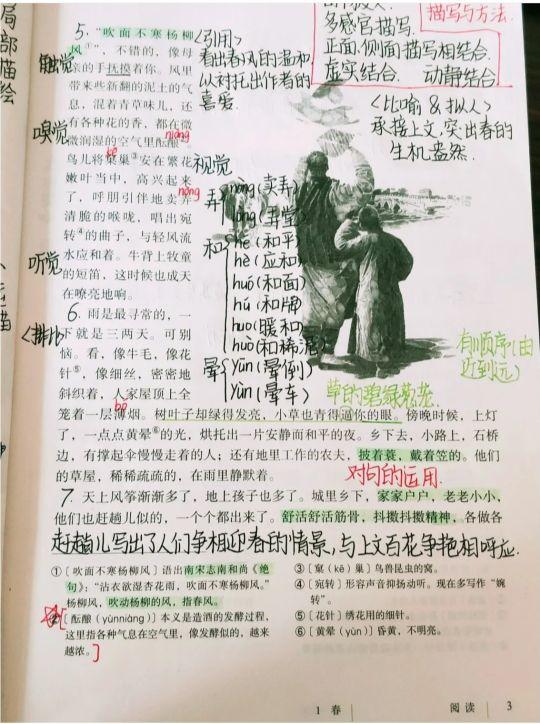 局部描绘
描写与方法.
多感官描写.
正面,侧面描写相结合
虚实结合. 动静结合
5. “吹面不寒杨柳
风①”,不错的,像母
亲的手抚摸着你。风里
带来些新翻的泥土的气
息,混着青草味儿,还
有各种花的香,都在微
微润湿的空气里酝酿。
鸟儿将窠巢③安在繁花
嫩叶当中,高兴起来
了,呼朋引伴地卖弄
清脆的喉咙,唱出宛
转④的曲子,与轻风流
水应和着。牛背上牧童
的短笛,这时候也成天
在嘹亮地响。
触觉
嗅觉
听觉
视觉
niàng
kē
nòng
<引用>
看出春风的温和,
从衬托出作者的
喜爱.
<比喻&拟人>
承接上文,突出春的
生机盎然.
弄
nòng(卖弄)
lòng(弄堂)
和
hé(和平)
hè(应和)
huó(和面)
hú(和牌)
huo(暖和)
huò(和稀泥)
晕
yūn(晕倒)
yùn(晕车)
<排比>
6. 雨是最寻常的,一
下就是三两天。可别
恼。看,像牛毛,像花
针⑤,像细丝,密密地
斜织着,人家屋顶上全
笼着一层薄烟。树叶子却绿得发亮,小草也青得逼你的眼。傍晚时候,上灯
了,一点点黄晕⑥的光,烘托出一片安静而和平的夜。乡下去,小路上,石桥
边,有撑起伞慢慢走着的人;还有地里工作的农夫,披着蓑,戴着笠的。他们
的草屋,稀稀疏疏的,在雨里静默着。
有顺序(由
近到远)
对句的运用.
7. 天上风筝渐渐多了,地上孩子也多了。城里乡下,家家户户,老老小小,
他们也赶趟儿似的,一个个都出来了。舒活舒活筋骨,抖擞抖擞精神,各做各
赶趟儿写出了人们争相迎春的情景,与上文百花争艳相呼应.
①〔吹面不寒杨柳风〕语出南宋志南和尚《绝
句》:“沾衣欲湿杏花雨,吹面不寒杨柳风。”
杨柳风,吹动杨柳的风,指春风。
②〔酝酿(yùnniàng)〕本义是造酒的发酵过程,
这里指各种气息在空气里,像发酵似的,越来
越浓。
③〔窠(kē)巢〕鸟兽昆虫的窝。
④〔宛转〕形容声音抑扬动听。现在多写作“婉
转”。
⑤〔花针〕绣花用的细针。
⑥〔黄晕(yùn)〕昏黄,不明亮。
1 春
阅读 3